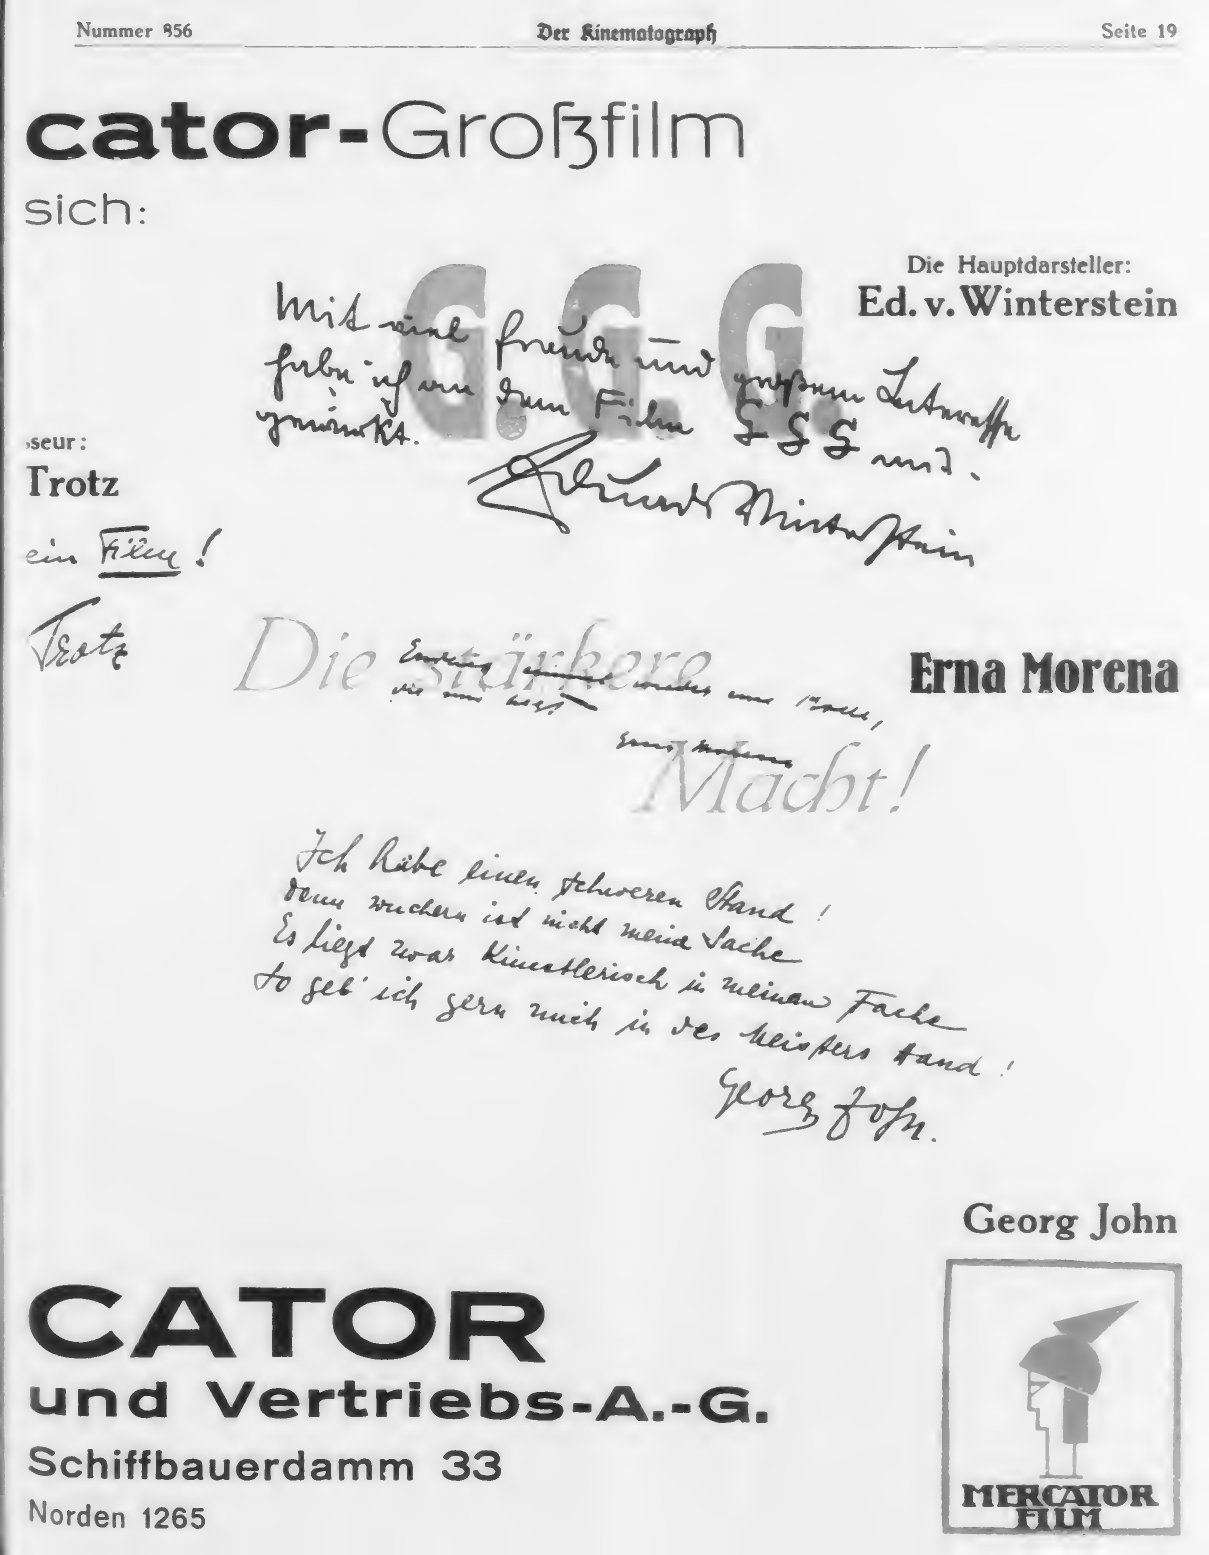 Nummer 856 Der Kinematograph Seite 19
cator-Großfilm
sich:
G. G. G.
Die Hauptdarsteller:
Ed. v. Winterstein
Mit viel Freude und großem Interesse
habe ich an dem Film G G G mit-
gewirkt.
Eduard v. Winterstein
seur:
Trotz
ein Film!
Trotz
Die stärkere
Macht!
Erna Morena
Endlich wieder eine Rolle,
die mir liegt
Erna Morena
Ich habe einen schweren Stand!
denn wuchern ist nicht meine Sache
Es liegt zwar künstlerisch in meinem Fache
So geb' ich gern mich in des Meisters Hand!
Georg John.
Georg John
CATOR
und Vertriebs-A.-G.
Schiffbauerdamm 33
Norden 1265
MERCATOR
FILM